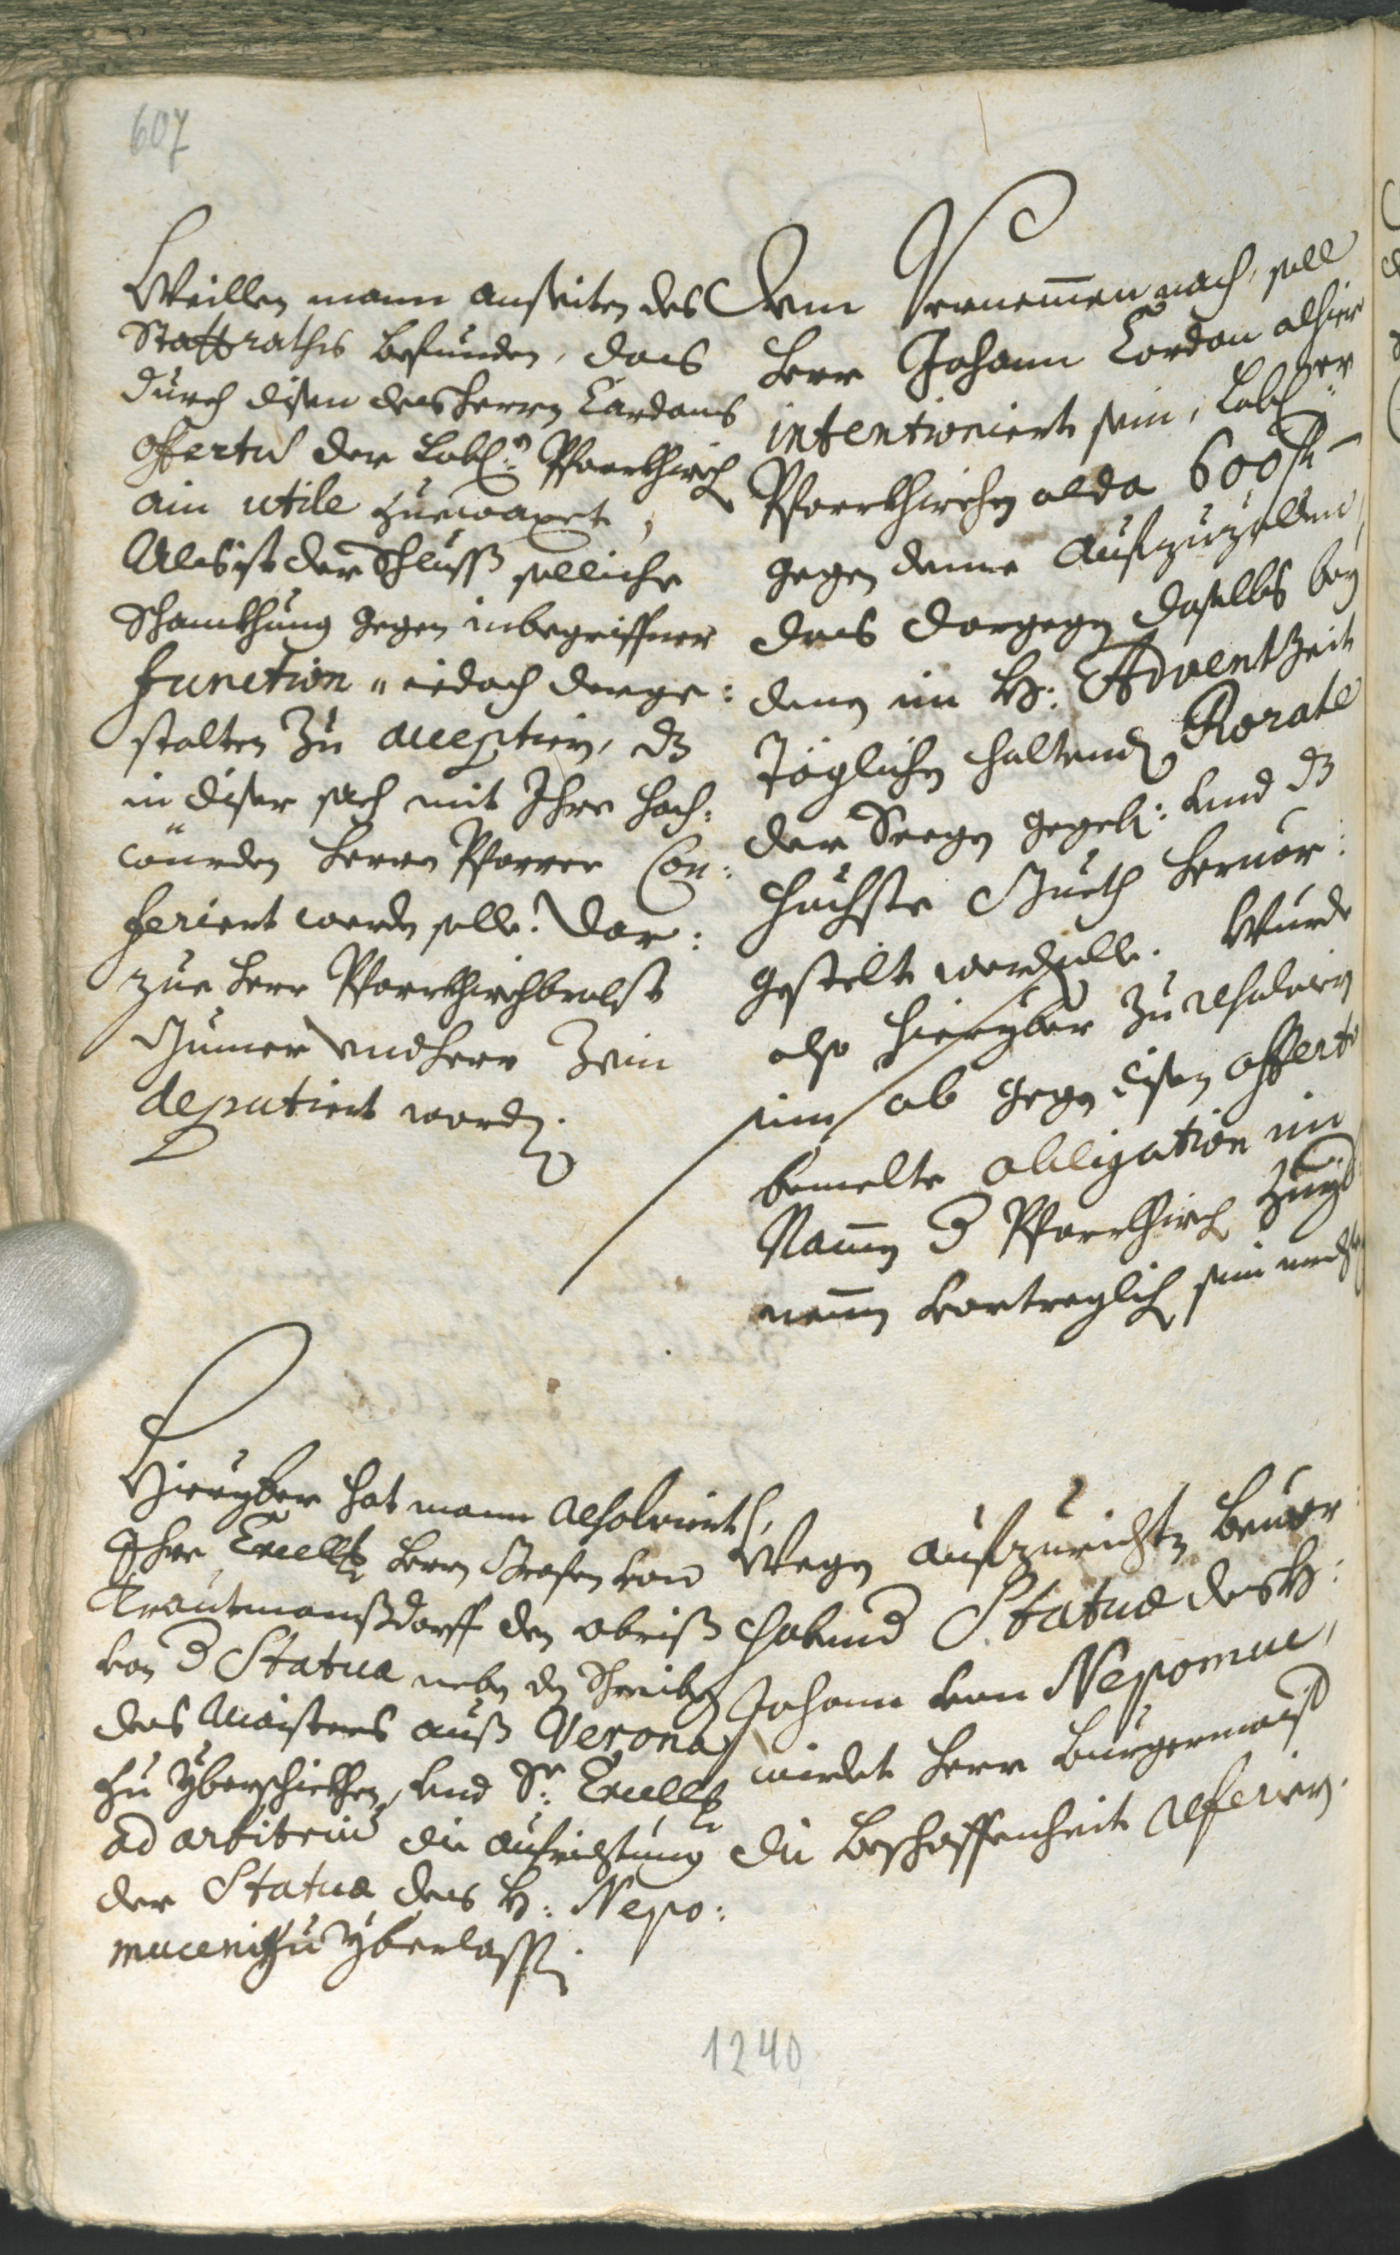 607
Weillen mann anseiten des
Stattraths befunden, das
durch disen des Herrn Cardans
offertus der Lobl: Pfarrkhirch
ain utile zuewaxet,
Als ist der Schluss solliche
Schankhung gegen inbegriffner
function " iedoch derge:
stalten zu acceptiern, dz
in diser sach mit Ihro Hoch:
würden Herrn Pfarrer Con:
feriert werden solle. Dar:
zue Herr Pfarrkhirchbrobst
Gumer und Herr Zein
deputiert worden.
Dem Vernemmen nach, soll
Herr Johann Cordan alhier
intentioniert sein, Lobl:er
Pfarrkhirchen alda 600 f
gegen deme aufzuzellen,
das dargegen daselbs bey
denen im H: Advent Zeit
täglichen haltenden Rorate
der Seegen gegeben: und dz
höchste Gueth hervor:
gestelt werden solle. Wurde
also hieryber zu resolviern
sein, ob gegen disen offerto
bemelte obligation im
Namen der Pfarrkhirch
nemmen vortreglich sein mechte
Hieryber hat mann resolviert,
Ihro Excellz Herrn Grafen von
Trautmansdorff den abriss
von der Statua neben den Schreiben
des Maisters auss Verona
zu yberschickhen, und Sr: Excellz
ad arbitrium die aufrichtung
der Statua des H: Nepo:
muceni zu yberlassen.
Wegen aufzurichten bevor
habend Statua des H:
Johann von Nepomuc,
wirdet Herr Burgermaister
die beschaffenheit referiern.
1240